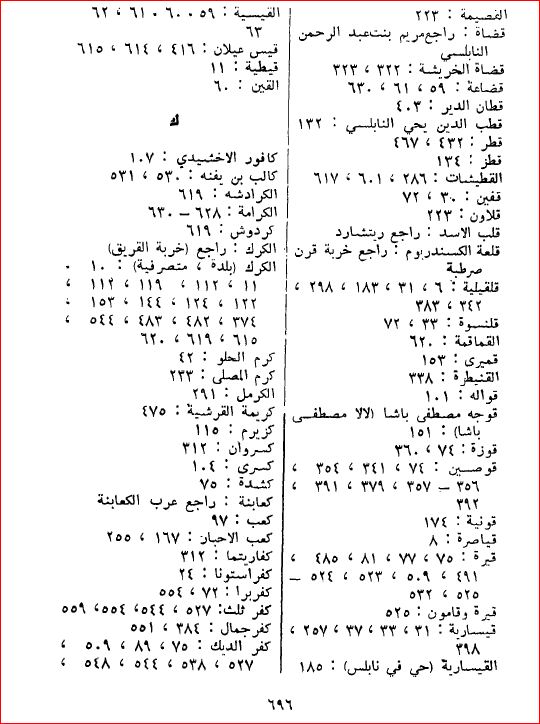 القصيمة : ٢٢٣
قضاة : راجع مريم بنت عبد الرحمن
النابلسي
قضاة الخريشة : ٣٢٢ ، ٣٢٣
قضاعة : ٥٩ ، ٦١ ، ٦٣٠
قطان الدير : ٤٠٣
قطب الدين يحي النابلسي : ١٣٢
قطر : ٤٣٢ ، ٤٦٧
قطز : ١٣٤
القطيشات : ٢٨٦ ، ٦٠١ ، ٦١٧
قفين : ٣٠ ، ٧٢
قلاون : ٢٢٣
قلب الاسد : راجع ريتشارد
قلعة الكسندريوم : راجع خربة قرن
صرطبة
قلقيلية : ٦ ، ٣١ ، ١٨٣ ، ٢٩٨ ،
٣٤٢ ، ٣٨٣
قلنسوة : ٣٣ ، ٧٢
القماقمة : ٦٢٠
قميرى : ١٥٣
القنيطرة : ٣٣٨
قواله : ١٠١
قوجه مصطفى باشا (لالا مصطفى
باشا) : ١٥١
قوزة : ٧٤ ، ٣٦٠
قوصين : ٧٤ ، ٣٤١ ، ٣٥٤ ،
٣٥٦ – ٣٥٧ ، ٣٧٩ ، ٣٩١ ،
٣٩٢
قونية : ١٧٤
قياصرة : ٨
قيرة : ٧٥ ، ٧٧ ، ٨١ ، ٤٨٥ ،
٤٩١ ، ٥٠٩ ، ٥٢٣ ، ٥٢٤ –
٥٢٥ ، ٥٣٢
قيرة وقامون : ٥٢٥
قيسارية : ٣١ ، ٣٣ ، ٣٧ ، ٢٥٧ ،
٣٩٨
القيسارية (حي في نابلس) : ١٨٥
القيسية : ٥٩ ، ٦٠ ، ٦١ ، ٦٢ ،
٦٣
قيس عيلان : ٤١٦ ، ٦١٤ ، ٦١٥
قيطية : ١١
القين : ٦٠
ك
كافور الاخشيدي : ١٠٧
كالب بن يفنه : ٥٣٠ ، ٥٣١
الكرادشه : ٦١٩
الكرامة : ٦٢٨ – ٦٣٠
كردوش : ٦١٩
الكرك : راجع (خربة القريق)
الكرك (بلدة ، متصرفية) : ١٠ ،
١١ ، ١١٢ ، ١١٩ ، ١١٢ ،
١٢٢ ، ١٢٤ ، ١٤٤ ، ١٥٣ ،
٣٧٤ ، ٤٨٢ ، ٤٨٣ ، ٥٤٤ ،
٦١٥ ، ٦١٩ ، ٦٢٠
كرم الحلو : ٤٢
كرم المصلى : ٢٣٣
الكرمل : ٢٩١
كريمة القرشية : ٤٧٥
كزبرم : ١١٥
كسروان : ٣١٢
كسرى : ١٠٤
كشدة : ٧٥
كعابنة : راجع عرب الكعابنة
كعب : ٩٧
كعب الاحبار : ١٦٧ ، ٢٥٥
كفاريتما : ٣١٢
كفراستونا : ٢٤
كفربرا : ٧٢ ، ٥٥٤
كفر ثلث : ٥٢٧ ، ٥٤٤ ، ٥٥٤ ، ٥٥٩
كفرجمال : ٣٨٤ ، ٥٥١
كفر الديك : ٧٥ ، ٨٩ ، ٥٠٩ ،
٥٢٧ ، ٥٣٨ ، ٥٤٤ ، ٥٤٨ ،
٦٩٦